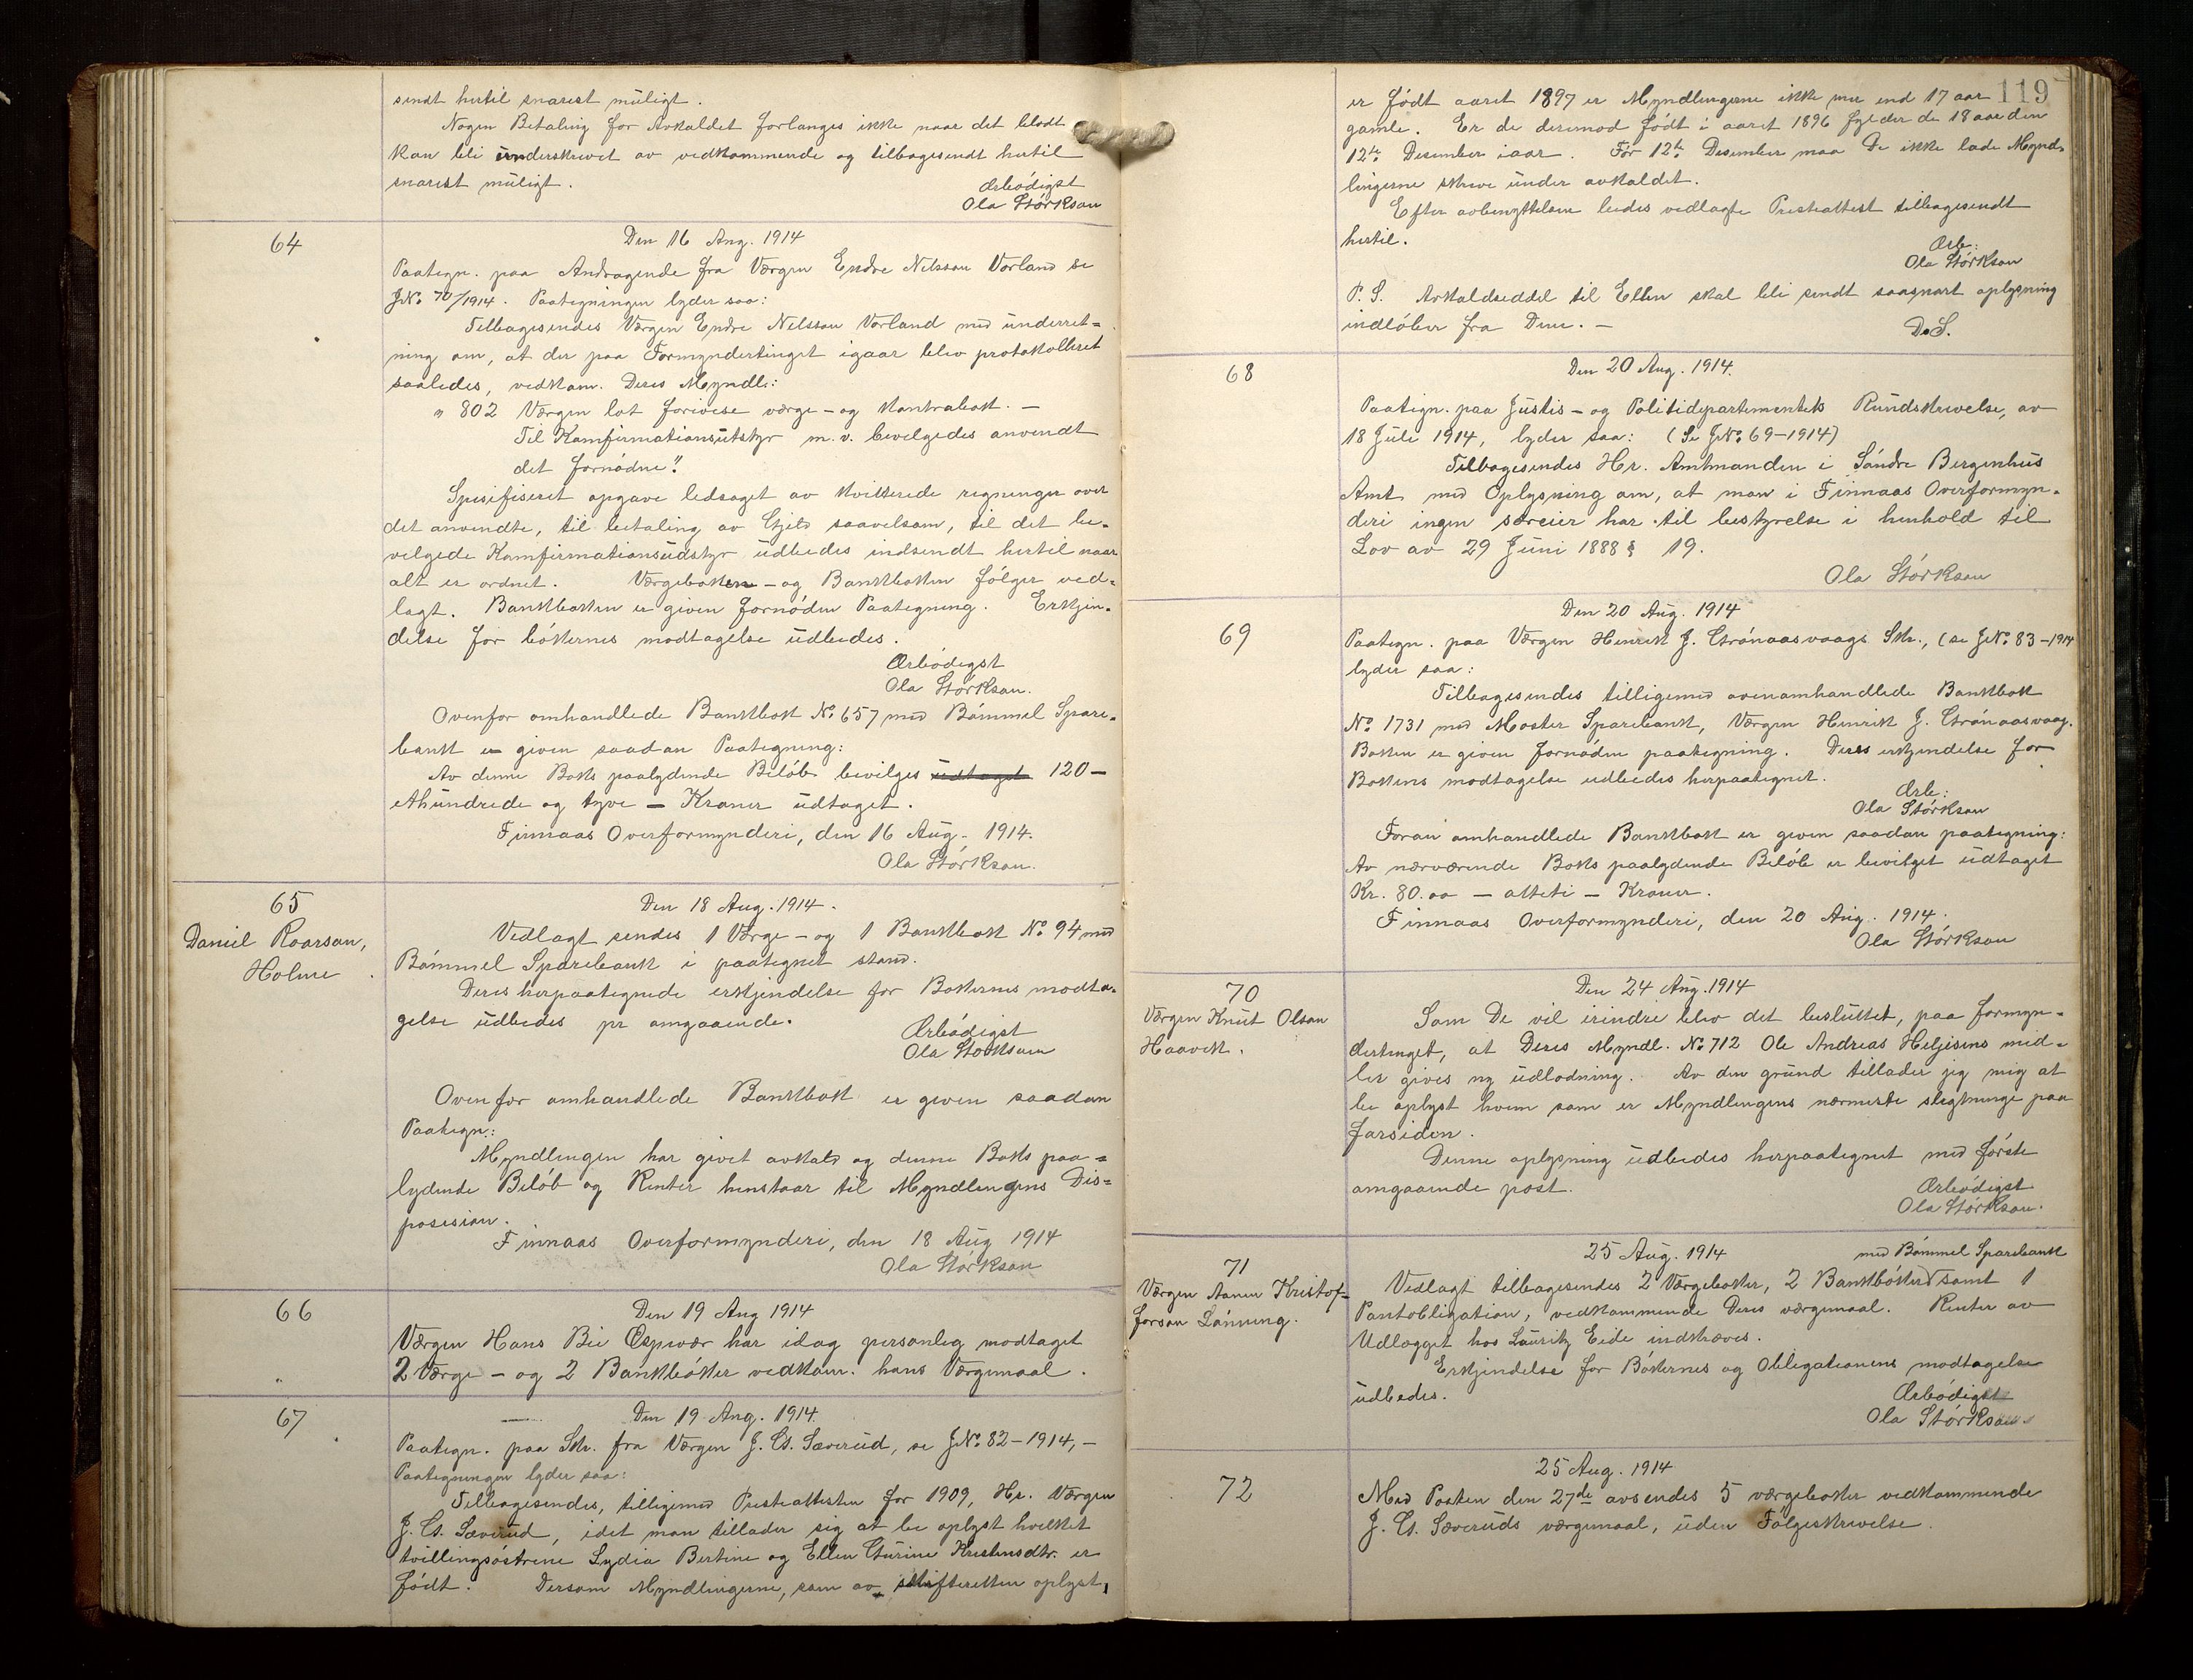 sendt hertil snarest müligt.
Nogen Betaling for Avkaldet forlanges ikke naar det blodt
kan bli ünderskrevet av vedkommende og tilbagesendt hertil
snarest müligt.
Ærbødigst
Ola Størkson
64
Den 16 Aug. 1914
Paategn. paa Andragende fra Værgen Endre Nilsson Vorland se
JNo. 70/1914. Paategningen lyder saa:
Tilbagesendes Værgen Endre Nilsson Vorland med ünderret-
ning om, at der paa Formyndertinget igaar blev protokolleret
saaledes, vedkom. Deres Myndl.:
" 802 Værgen lot forevise værge- og kontrabok. —
Til Komfirmationsütstyr m. v. bevilgedes anvendt
det fornødne."
Spesifiseret opgave ledsaget av kvitterede regninger over
det anvendte, til betaling av Gjeld saavelsom, til det be-
vilgede Komfirmationsüdstyr üdbedes indsendt hertil naar
alt er ordnet. Værgeboken- og Bankboken følger ved-
lagt. Bankboken er given fornøden Paategning. Erkjen-
delse for bøkernes modtagelse üdbedes.
Ærbødigst
Ola Størkson.
Ovenfor omhandlede Bankbok No. 657 med Bømmel Spare-
bank er given saadan Paategning:
Av denne Boks paalydende Beløb bevilges üdtaget 120 —
ethündrede og tyve — Kroner üdtaget.
Finnaas Overformynderi, den 16 Aug. 1914.
Ola Størkson.
65
Daniel Roarson,
Holme
Den 18 Aug. 1914.
Vedlagt sendes 1 Værge- og 1 Bankbok No. 94 med
Bømmel Sparebank i paategnet stand.
Deres herpaategnede erkjendelse for Bokernes modta-
gelse üdbedes pr omgaaende.
Ærbødigst
Ola Størkson
Ovenfor omhandlede Bankbok er given saadan
Paategn.:
Myndlingen har givet avkald og denne Boks paa-
lydende Beløb og Renter henstaar til Myndlingens Dis-
posision.
Finnaas Overformynderi, den 18 Aug 1914
Ola Størkson
66
Den 19 Aug 1914
Værgen Hans Bie Espevær har idag personlig modtaget
2 Værge- og 2 Bankbøker vedkom. hans Værgemaal.
67
Den 19 Aug. 1914.
Paategn. paa Skr. fra Værgen J. G. Sæverüd, se JNo. 82-1914, —
Paategningen lyder saa:
Tilbagesendes, tilligemed Presteattesten for 1909, Hr. Værgen
J. G. Sæverüd, idet man tillader sig at be oplyst hvilket
tvillingsøstrene Lydia Bertine og Ellen Gürine Kristensdtr. er
født. Dersom Myndlingerne, som av skifteretten oplyst,
119
er født aaret 1897 er Myndlingerne ikke mer end 17 aar
gamle. Er de derimod født i aaret 1896 fylder de 18 aar den
12te Desember iaar. Før 12te Desember maa De ikke lade Mynd-
lingerne skrive ünder avkaldet.
Efter avbenyttelsen bedes vedlagte Presteattest tilbagesendt
hertil.
Ærb:
Ola Størkson
P. S. Avkaldseddel til Ellen skal bli sendt saasnart oplysning
indløber fra Dem. —
D. S.
68
Den 20 Aug. 1914.
Paategn. paa Jüstis- og Politidepartementets Ründskrivelse, av
18 Jüli 1914, lyder saa: (Se JNo. 69-1914)
Tilbagesendes Hr. Amtmanden i Søndre Bergenhüs
Amt med Oplysning om, at man i Finnaas Overformyn-
deri ingen særeier har til bestyrelse i henhold til
Lov av 29 Jüni 1888 § 19.
Ola Størkson
69
Den 20 Aug. 1914
Paategn. paa Værgen Henrik J. Grønaasvaags Skr., (se JNo. 83-1914
lyder saa:
Tilbagesendes tilligemed ovenomhandlede Bankbok
No. 1731 med Moster Sparebank, Værgen Henrik J. Grønaasvaag.
Boken er given fornøden paategning. Deres erkjendelse for
Bokens modtagelse udbedes herpaategnet.
Ærb:
Ola Størkson
Foran omhandlede Bankbok er given saadan paategning:
Av nærværende Boks paalydende Beløb er bevilget üdtaget
Kr. 80.00 — otteti — Kroner.
Finnaas Overformynderi, den 20 Aug. 1914.
Ola Størkson
70
Værgen Knüt Olson
Haavik.
Den 24 Aug. 1914
Som De vil erindre blev det beslüttet, paa formyn-
dertinget, at Deres Myndl. No. 712 Ole Andreas Heljesens mid-
ler gives ny üdlodning. Av den gründ tillader jeg mig at
be oplyst hvem som er Myndlingens nærmeste slegtninge paa
farsiden.
Denne oplysning üdbedes herpaategnet med første
omgaaende post.
Ærbødigst
Ola Størkson.
71
Værgen Aanen Kristof-
forson Lønning.
25 Aug. 1914
med Bømmel Sparebank
Vedlagt tilbagesendes 2 Værgebøker, 2 Bankbøker samt 1
Pantobligation, vedkommende Deres værgemaal. Renter av
Udlægget hos Laüritz Eide indkræves.
Erkjendelse for Bøkernes og Obligationens modtagelse
üdbedes.
Ærbødigst
Ola Størkson
72
25 Aug. 1914
Med Posten den 27de avsendes 5 værgebøker vedkommende
J. G. Sæverüds værgemaal, üden Følgeskrivelse.